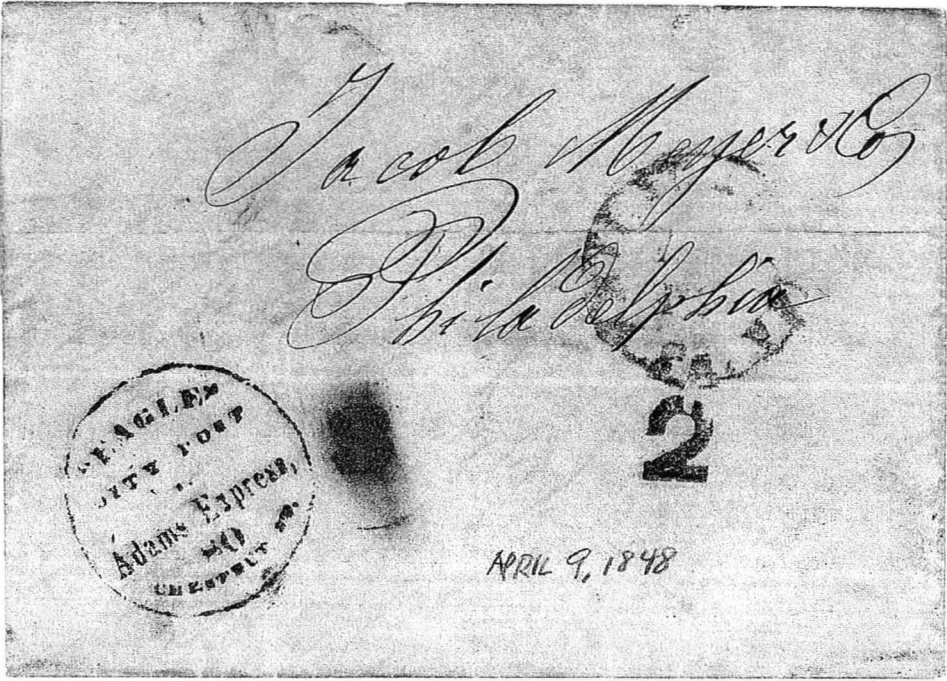 Jacob Meyer & Co
Philadelphia
PA.
2
EAGLE
CITY POST
Adams Express,
80
CHESTNUT ST.
APRIL 9, 1848